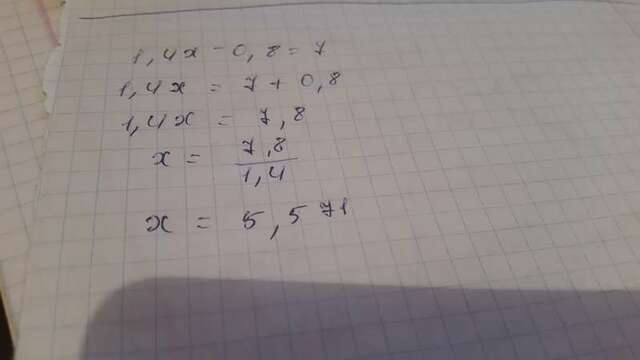 1,4x - 0,8 = 7
1,4x = 7 + 0,8
1,4x = 7,8
x = 7,8
1,4
x = 5,571